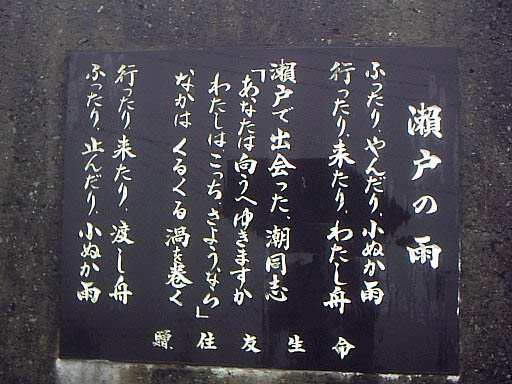 瀬戸の雨
ふったり、やんだり、小ぬか雨
行ったり、来たり、わたし舟
瀬戸で出会った、潮同志
「あなたは向うへゆきますか
わたしは、こっち、さようなら」
なかは くるくる 渦を巻く
行ったり、来たり、渡し舟
ふったり、止んだり、小ぬか雨
命生友住